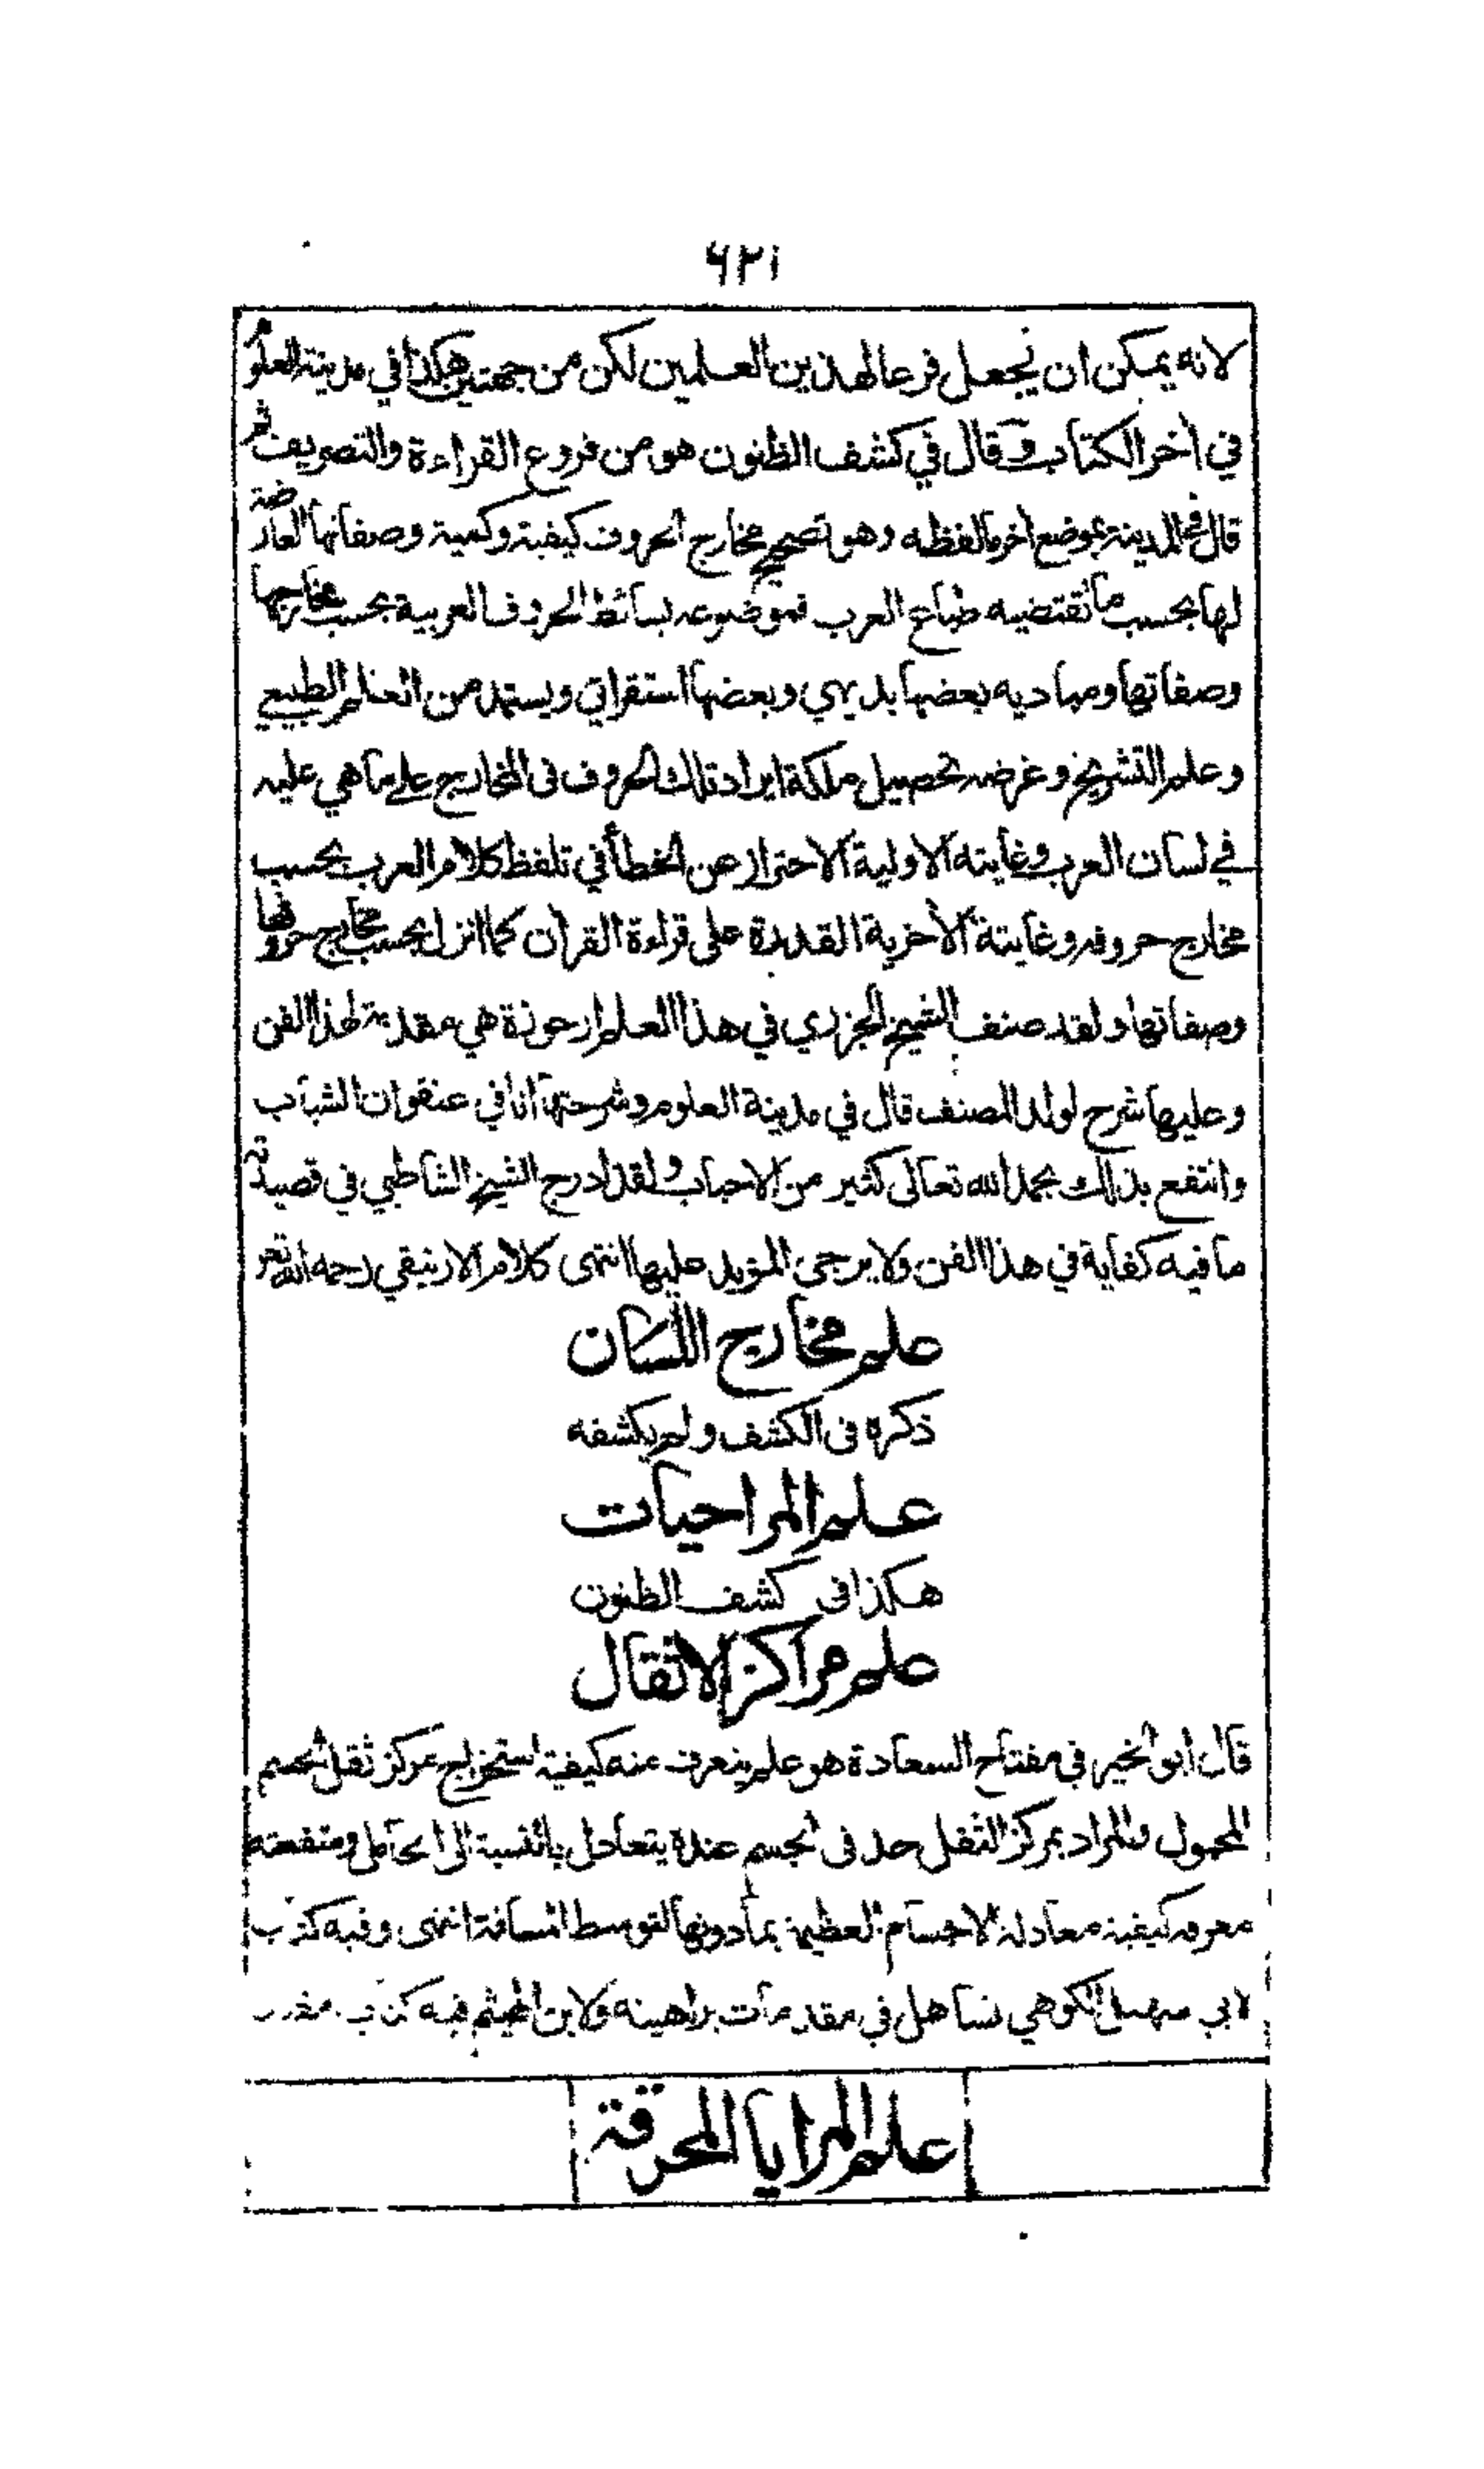 ٦٢١
لانه يمكن ان نجعل فرعا لهذين العلمين لكن من جهتين هكذا في مدينة العلوم
في اخر الكتاب وقال في كشف الظنون هو من فروع القراءة والتصريف ثم
قال في المدينة بموضع اخر ما لفظه وهو تصحيح مخارج الحروف كيفية وكمية وصفاتها العارضة
لها بحسب ما تقتضيه طباع العرب فموضوعه بسائط الحروف العربية بحسب مخارجها
وصفاتها ومباديه بعضها بديهي وبعضها استقرائي ويستمد من العلم الطبيعي
وعلم التشريخ وغرضه تحصيل ملكة ايراد تلك الحروف فى المخارج على ما هي عليه
في لسان العرب وغايته الاولية الاحتراز عن الخطأ في تلفظ كلام العرب بحسب
مخارج حروفه وغايتة الأخرية القدرة على قراءة القرأن كما انزل بحسب مخارج حروفها
وصفاتها ولقد صنف الشيخ الجزري في هذا العلم ارجوزة هي مقدمة لهذا الفن
وعليها شرح لولد المصنف قال في مدينة العلوم وشرحتها انا في عنفوان الشباب
وانتفع بذلك بحمد الله تعالى كثير من الاحباب ولقد ادرج الشيخ الشاطبي في قصيدته
ما فيه كفاية في هذا الفن ولا يرجى المزيد عليها انتهى كلام الارنيقي رحمه الله تعم
علم مخارج اللسان
ذكره فى الكشف ولم يكشفه
علم المراحيات
هكذا فى كشف الظنون
علم مراكز الاثقال
قال ابو الخير فى مفتاح السعادة هو علم يتعرف عنه كيفية استخراج مركز ثقل الجسم
المحمول والمراد بمركز الثقل حد فى الجسم عنده يتعادل بالنسبة الى الحامل ومنفعته
معرفة كيفية معادلة الاجسام العظيمة بما دونها لتوسط المسافة انتهى وفيه كتب
لابي سهل الكوهي تساهل في مقدمات براهينه ولابن الهيثم فيه كتاب مفرد
علم المرايا المحرقة